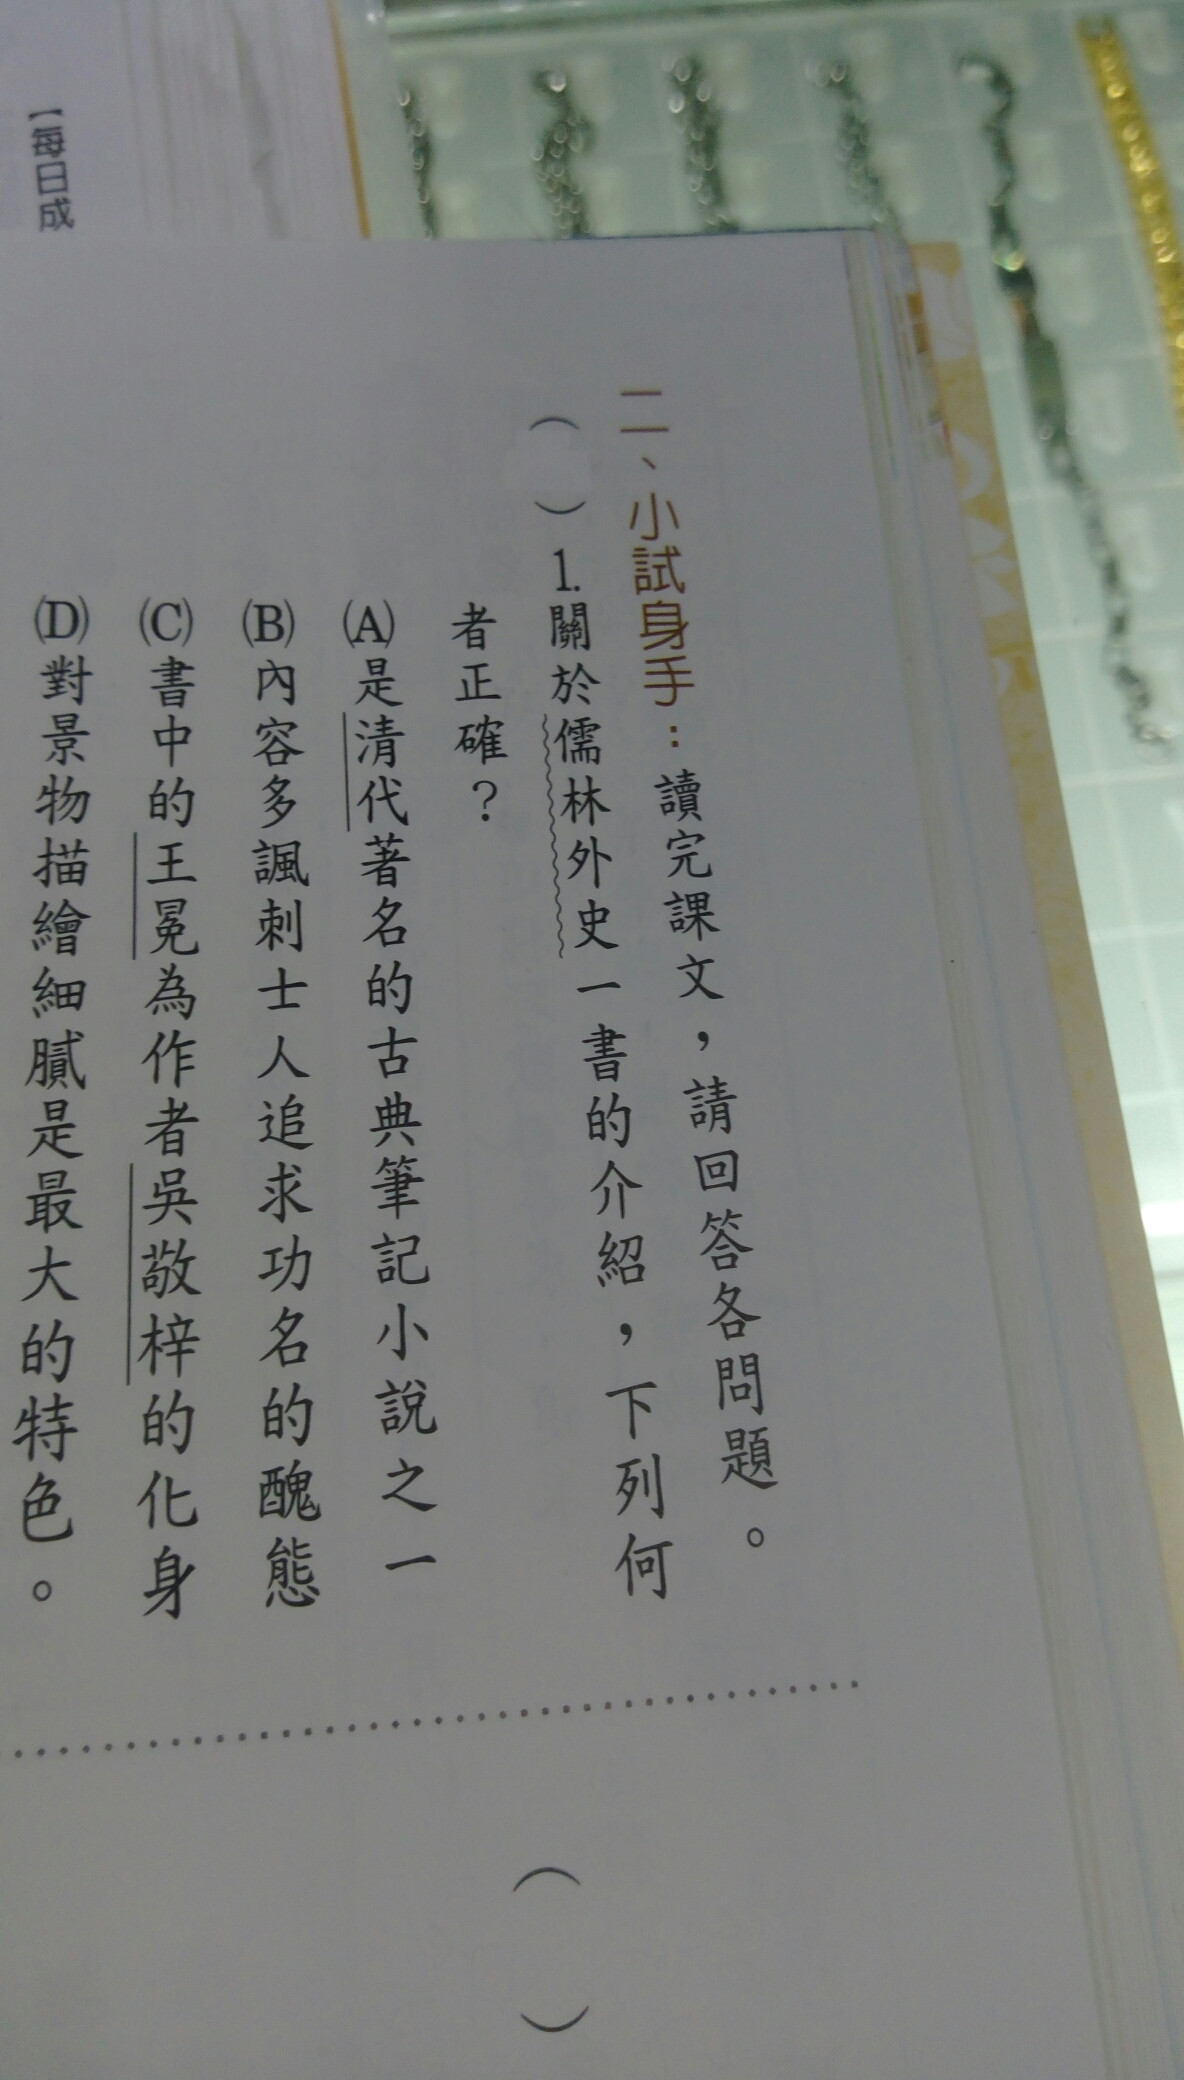 二、小試身手：讀完課文，請回答各問題。
（　）1.關於儒林外史一書的介紹，下列何
者正確？
(A)是清代著名的古典筆記小說之一
(B)內容多諷刺士人追求功名的醜態
(C)書中的王冕為作者吳敬梓的化身
(D)對景物描繪細膩是最大的特色。
（　）
【每日成